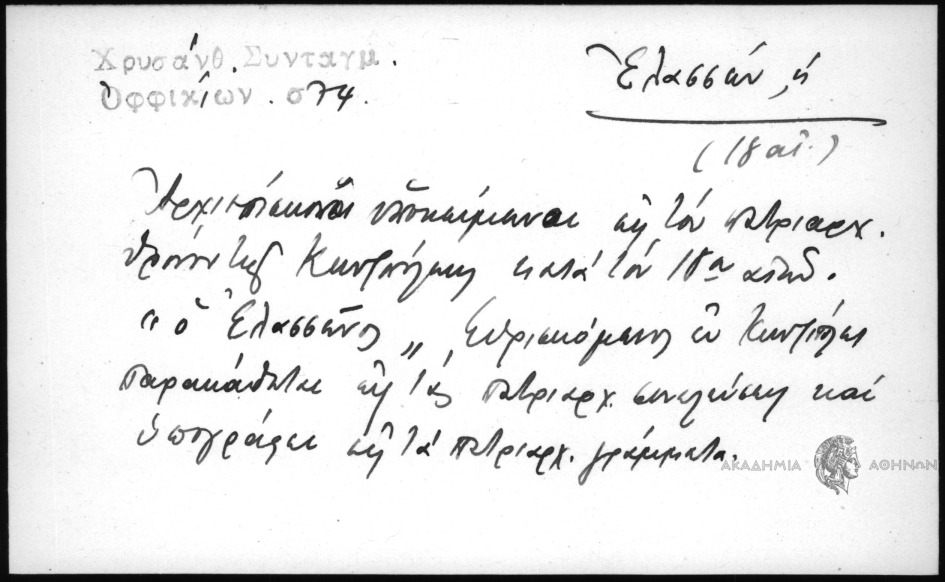 Χρυσάνθ. Συνταγμ.
Ὀφφικίων. σ 74.
Ἐλασσών, ἡ
(18 αἰ.)
Ἀρχιεπίσκοποι ὑποκείμενοι εἰς τὸν πατριαρχ.
θρόνον τῆς Κων/πόλεως κατὰ τὸν 18ον αἰῶν.
"ὁ Ἐλασσῶνος" Εὑρισκόμενος ἐν Κων/πόλει
παρακάθηται εἰς τὰς πατριαρχ. συνελεύσεις καὶ
ὑπογράφει εἰς τὰ πατριαρχ. γράμματα.
ΑΚΑΔΗΜΙΑ ΑΘΗΝΩΝ